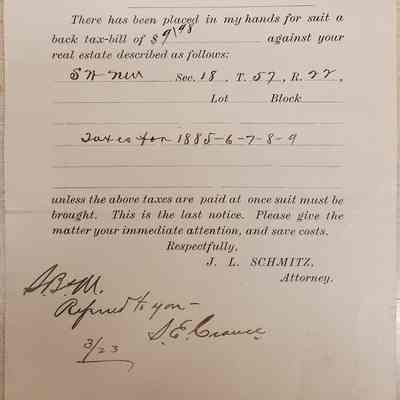 There has been placed in my hands for suit a
back tax-bill of $9\98 against your
real estate described as follows:
SW NW Sec. 18, T. 57, R. 22,
Lot Block
Taxes for 1885-6-7-8-9
unless the above taxes are paid at once suit must be
brought. This is the last notice. Please give the
matter your immediate attention, and save costs.
Respectfully,
J. L. SCHMITZ,
Attorney.
Referred to you —
S. E. Crance
3/23